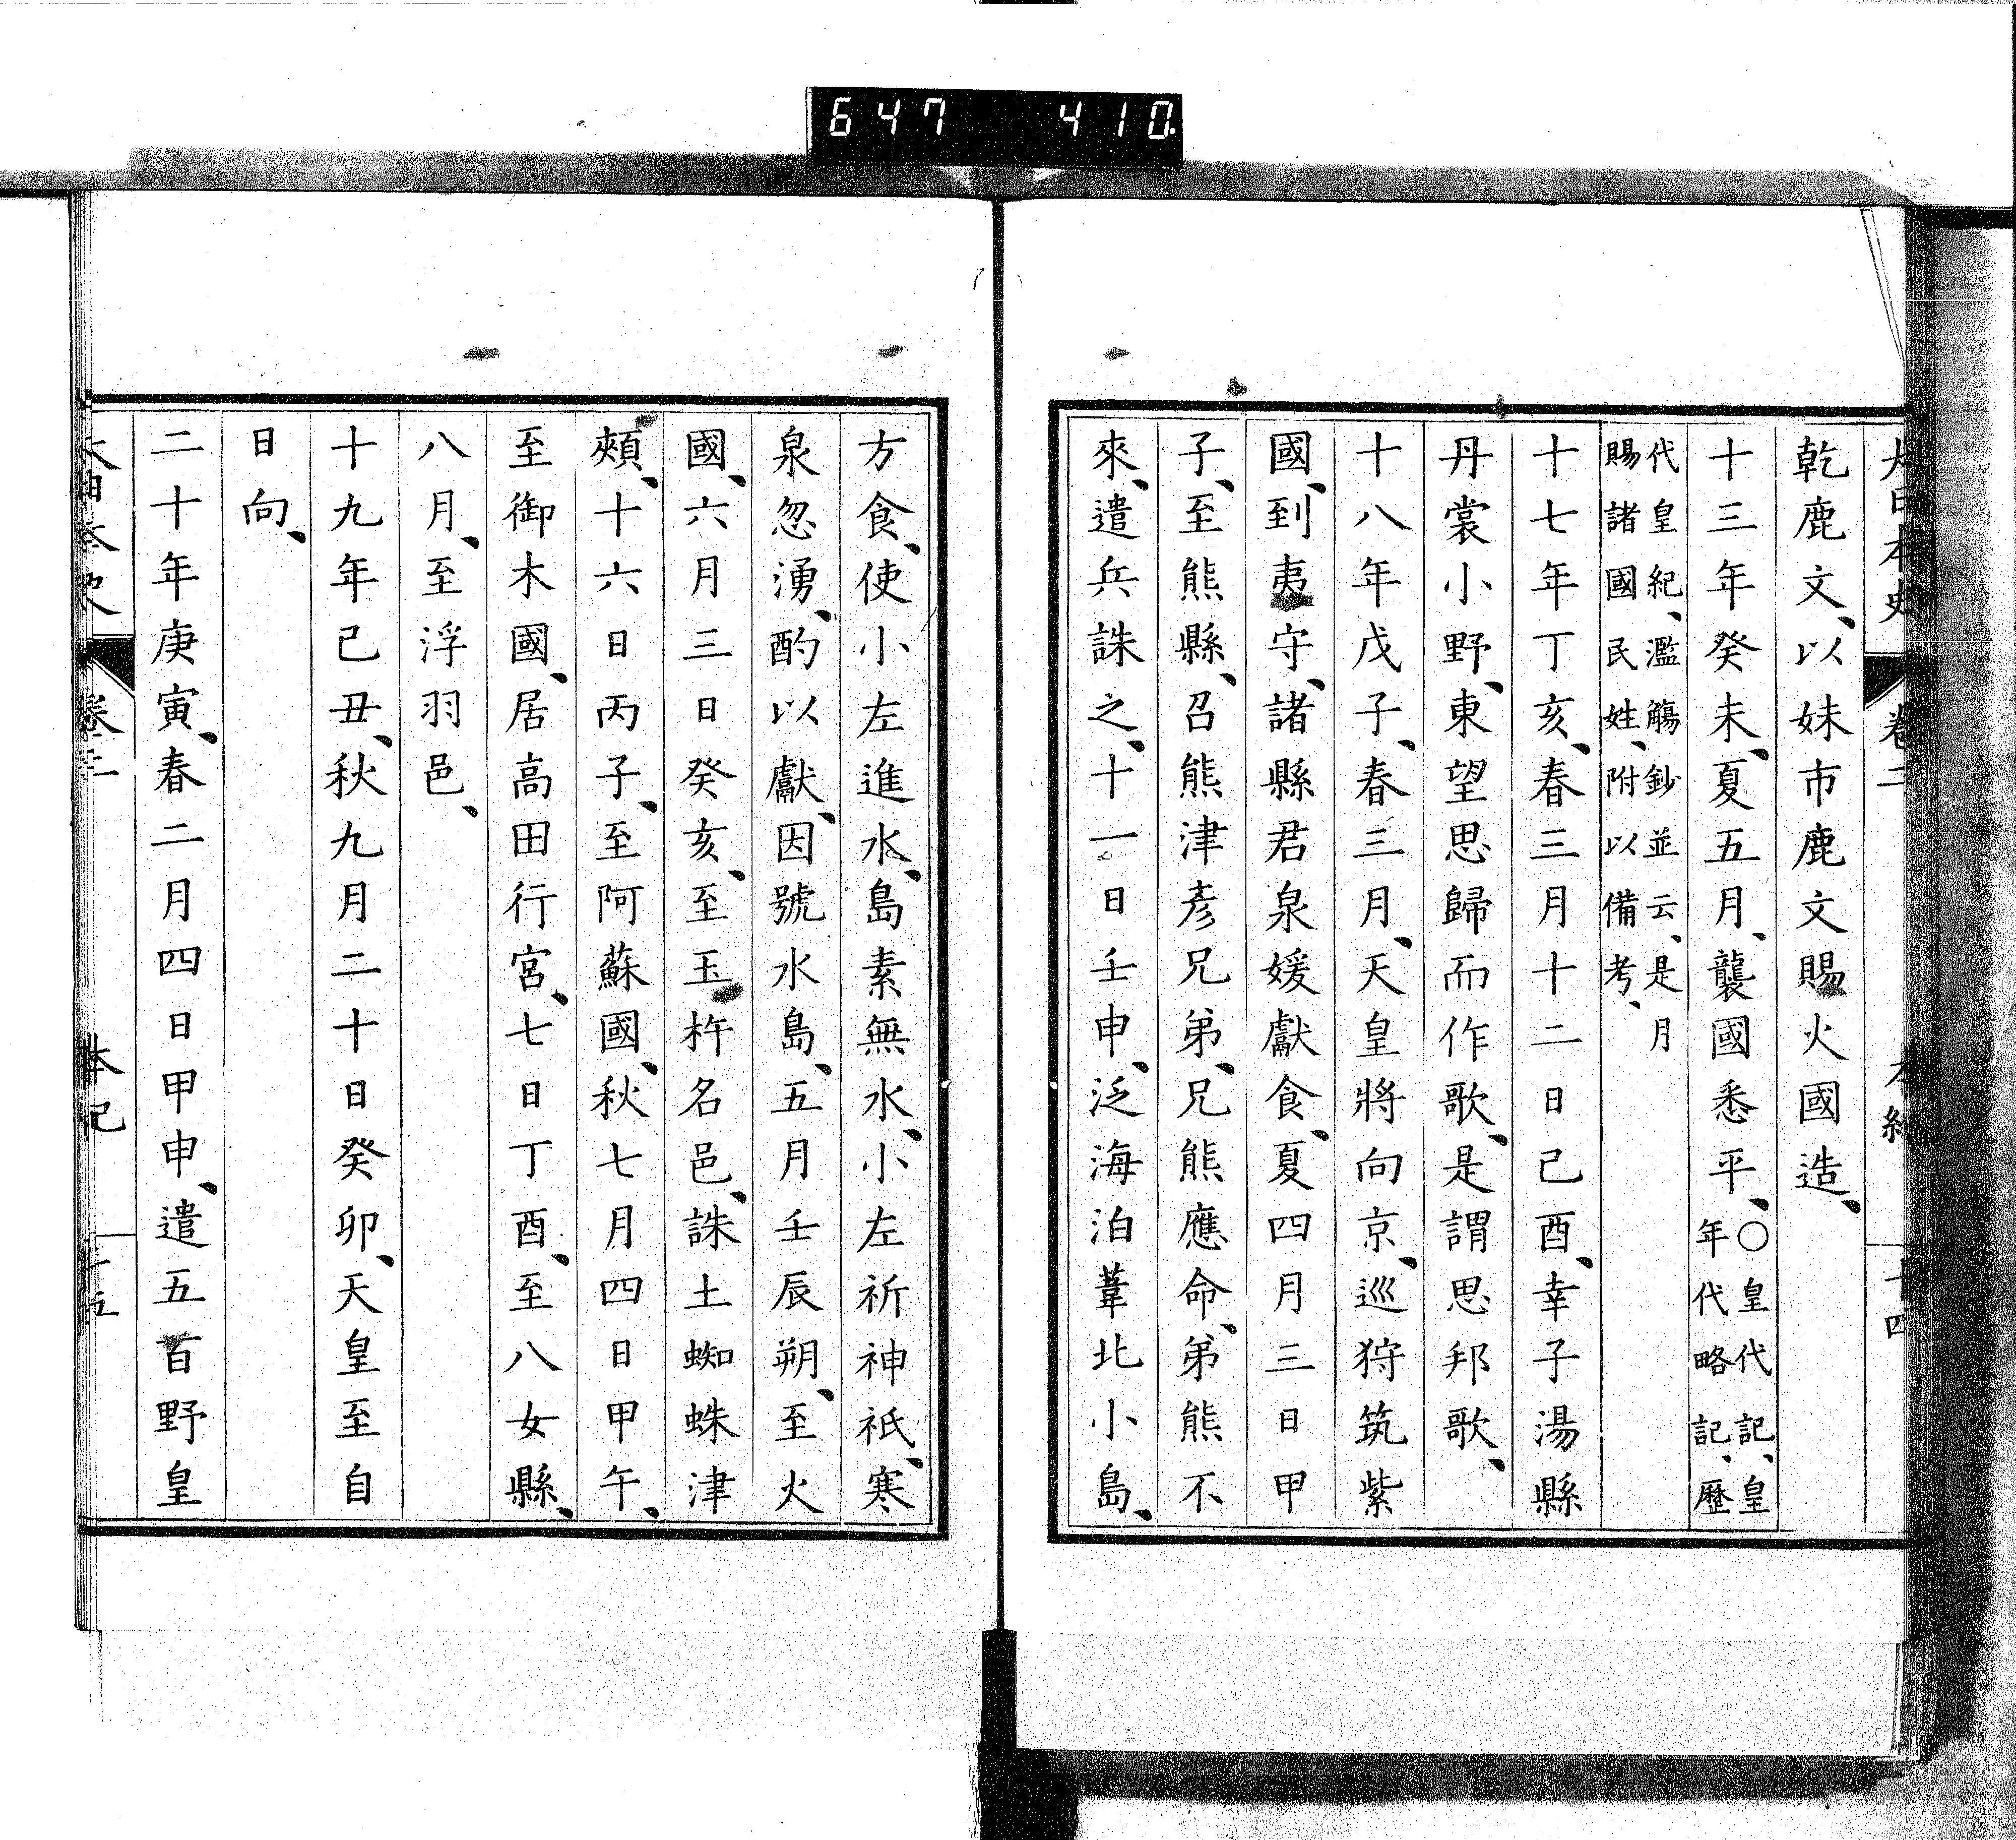 647 410
大日本史 卷二 本紀 十四
乾鹿文、以妹市鹿文賜火國造、
十三年癸未、夏五月、襲國悉平、〇皇代記、皇年代略記、歷
代皇紀、濫觴鈔並云、是月賜諸國民姓、附以備考、
十七年丁亥、春三月十二日己酉、幸子湯縣
丹裳小野、東望思歸而作歌、是謂思邦歌、
十八年戊子、春三月、天皇將向京、巡狩筑紫
國、到夷守、諸縣君泉媛獻食、夏四月三日甲
子、至熊縣、召熊津彥兄弟、兄熊應命、弟熊不
來、遣兵誅之、十一日壬申、泛海泊葦北小島、
方食、使小左進水、島素無水、小左祈神祇、寒
泉忽湧、酌以獻、因號水島、五月壬辰朔、至火
國、六月三日癸亥、至玉杵名邑、誅土蜘蛛津
頰、十六日丙子、至阿蘇國、秋七月四日甲午、
至御木國、居高田行宮、七日丁酉、至八女縣、
八月、至浮羽邑、
十九年己丑、秋九月二十日癸卯、天皇至自
日向、
二十年庚寅、春二月四日甲申、遣五百野皇
大日本史 卷二 本紀 十五